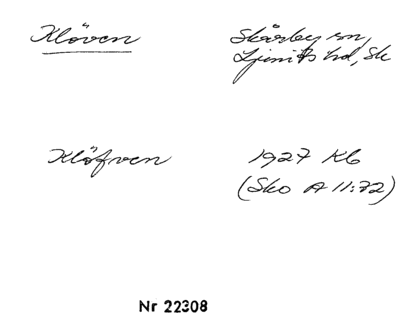 Klöven
Skårby sn,
Ljunits hd, Sk
Klöfven
1927 Kb
(Sko A 11:72)
Nr 22308